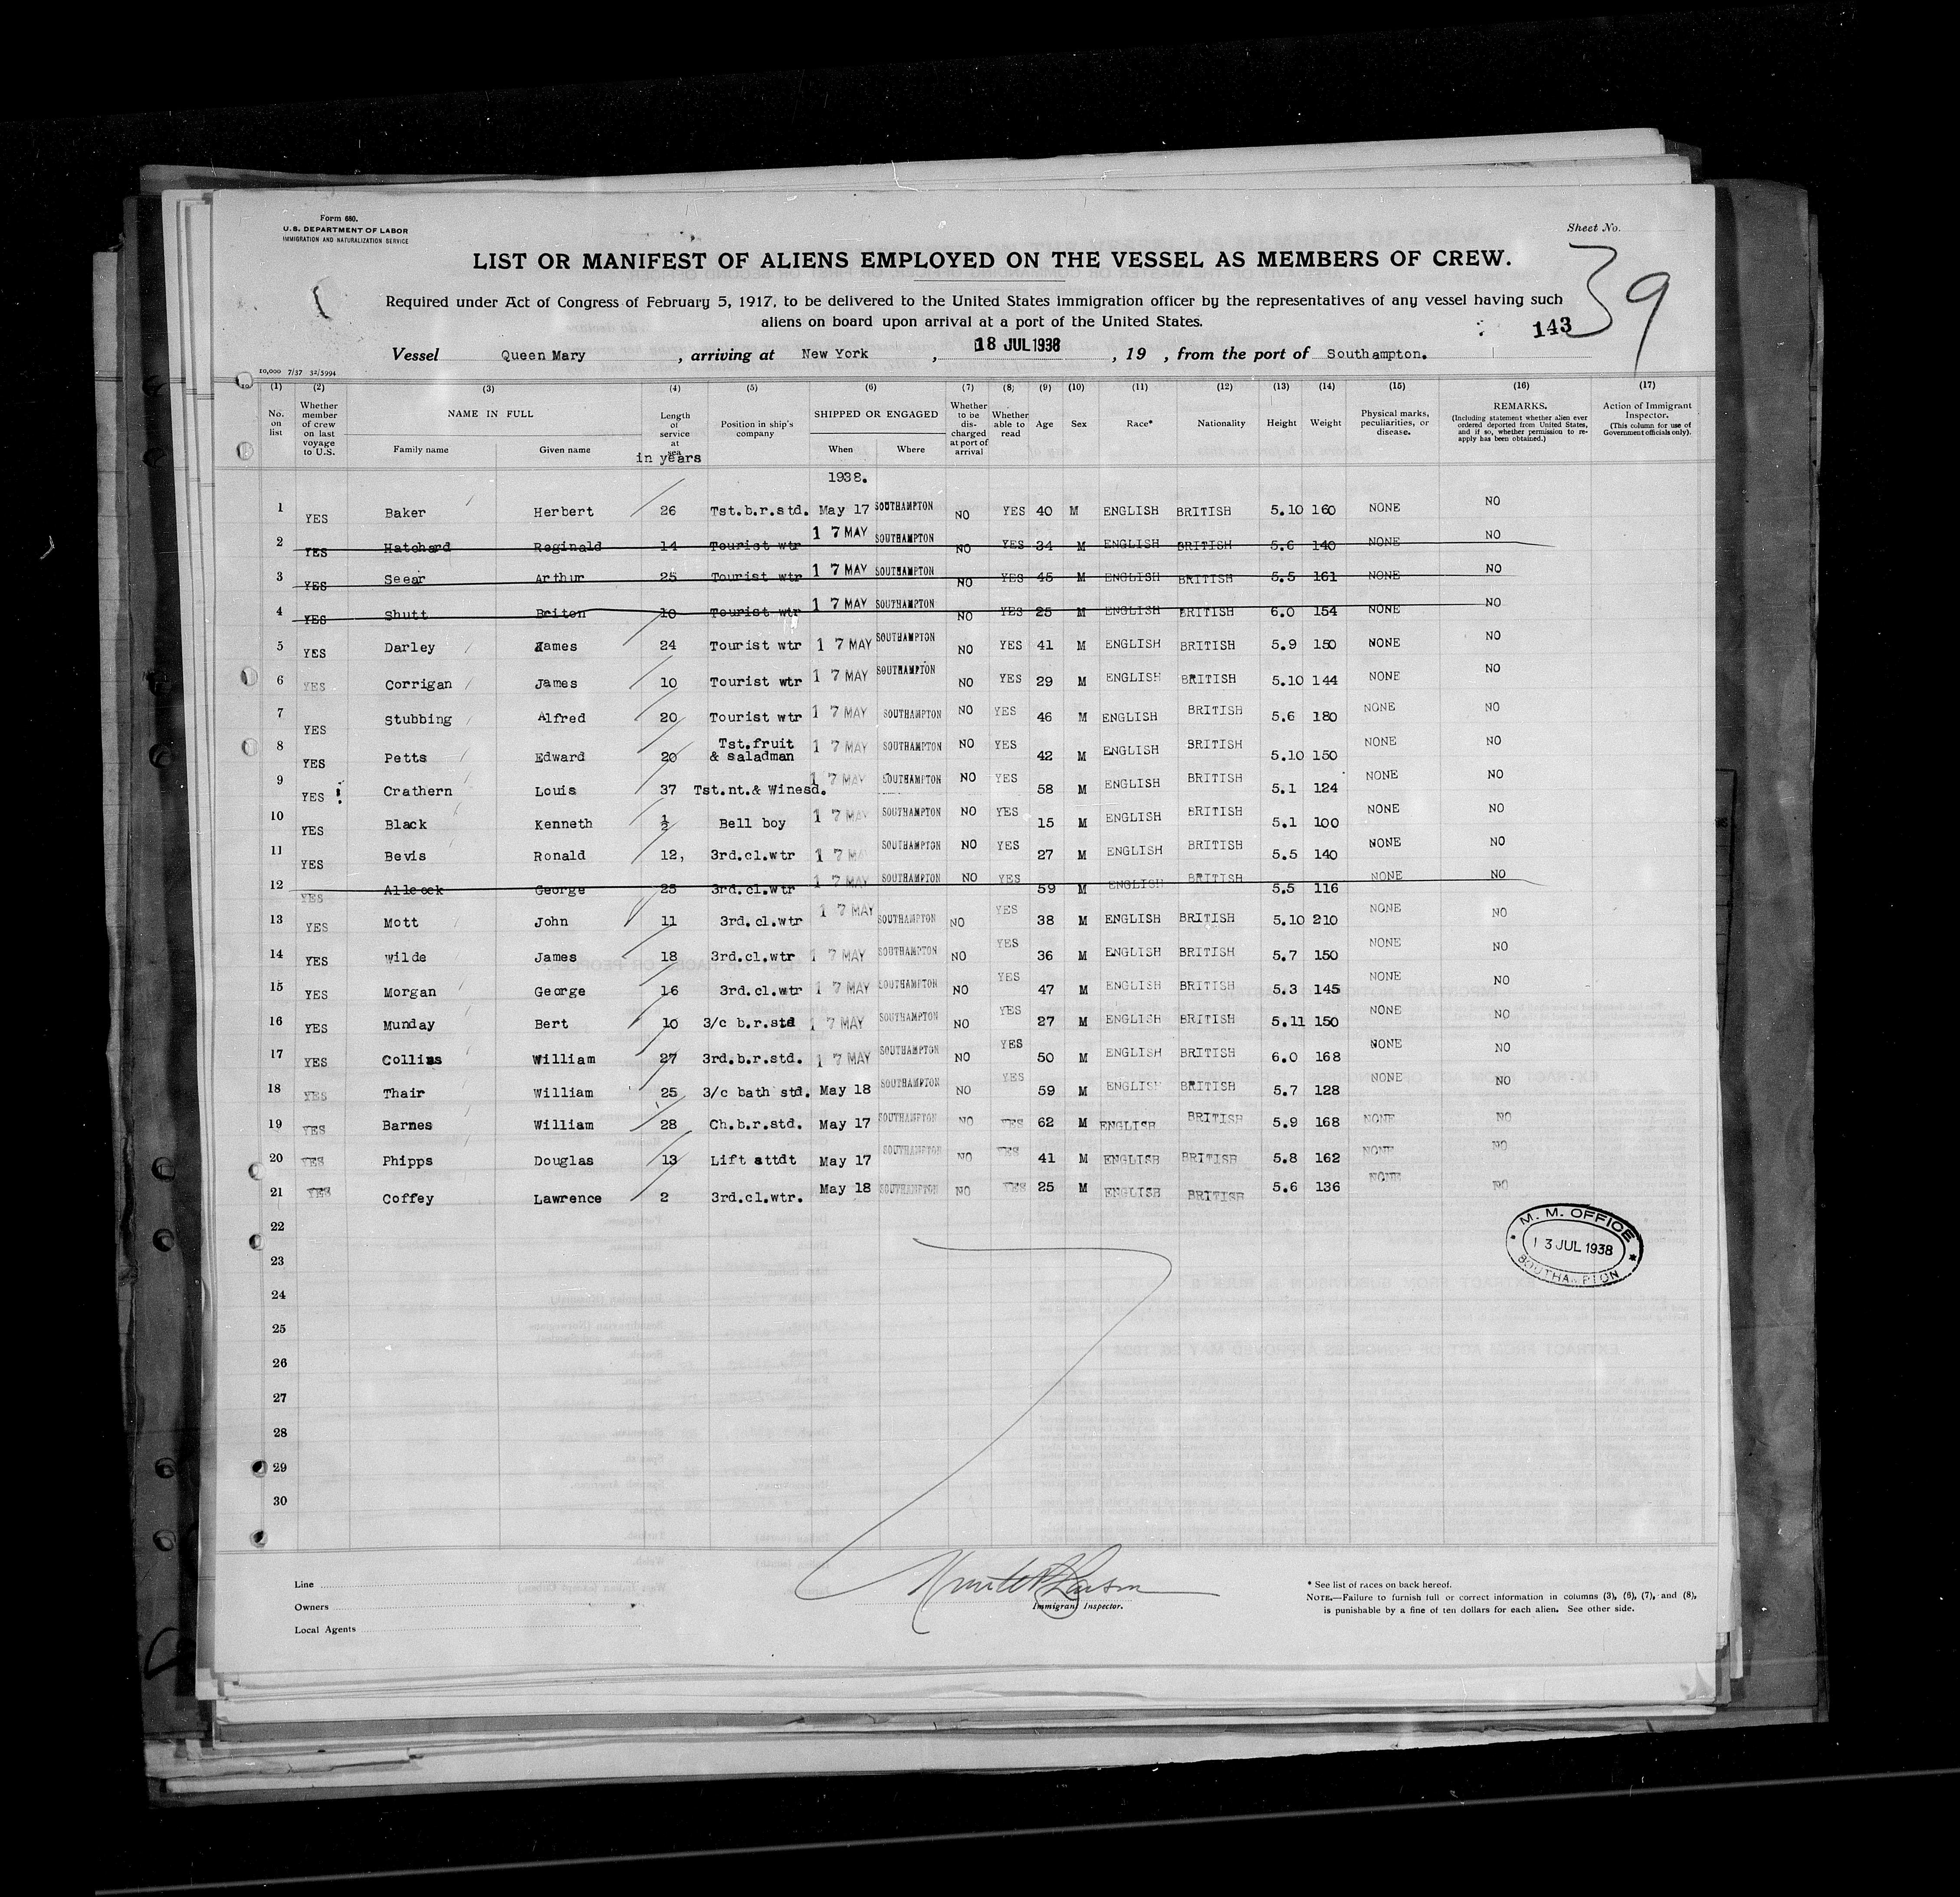 Form 680.
U.S. DEPARTMENT OF LABOR
IMMIGRATION AND NATURALIZATION SERVICE
Sheet No.
39
LIST OR MANIFEST OF ALIENS EMPLOYED ON THE VESSEL AS MEMBERS OF CREW.
Required under Act of Congress of February 5, 1917, to be delivered to the United States immigration officer by the representatives of any vessel having such
aliens on board upon arrival at a port of the United States.
143
Vessel Queen Mary , arriving at New York , 18 JUL 1938 , 19 , from the port of Southampton.
10,000 7/37 32/5994
(1) (2) (3) (4) (5) (6) (7) (8) (9) (10) (11) (12) (13) (14) (15) (16) (17)
No. on list
Whether member of crew on last voyage to U.S.
NAME IN FULL
Family name Given name
Length of service at sea
in years
Position in ship's company
SHIPPED OR ENGAGED
When Where
Whether to be discharged at port of arrival
Whether able to read
Age Sex Race* Nationality Height Weight
Physical marks, peculiarities, or disease.
REMARKS.
(Including statement whether alien ever ordered deported from United States, and if so, whether permission to reapply has been obtained.)
Action of Immigrant Inspector.
(This column for use of Government officials only).
1938.
1 YES Baker Herbert 26 Tst.b.r.std. May 17 SOUTHAMPTON NO YES 40 M ENGLISH BRITISH 5.10 160 NONE NO
2 YES Hatchard Reginald 14 Tourist wtr 1 7 MAY SOUTHAMPTON NO YES 34 M ENGLISH BRITISH 5.6 140 NONE NO
3 YES Seear Arthur 25 Tourist wtr 1 7 MAY SOUTHAMPTON NO YES 45 M ENGLISH BRITISH 5.5 161 NONE NO
4 YES Shutt Briton 10 Tourist wtr 1 7 MAY SOUTHAMPTON NO YES 25 M ENGLISH BRITISH 6.0 154 NONE NO
5 YES Darley James 24 Tourist wtr 1 7 MAY SOUTHAMPTON NO YES 41 M ENGLISH BRITISH 5.9 150 NONE NO
6 YES Corrigan James 10 Tourist wtr 1 7 MAY SOUTHAMPTON NO YES 29 M ENGLISH BRITISH 5.10 144 NONE NO
7 YES Stubbing Alfred 20 Tourist wtr 1 7 MAY SOUTHAMPTON NO YES 46 M ENGLISH BRITISH 5.6 180 NONE NO
8 YES Petts Edward 20 Tst.fruit & saladman 1 7 MAY SOUTHAMPTON NO YES 42 M ENGLISH BRITISH 5.10 150 NONE NO
9 YES Crathern Louis 37 Tst.nt.& Winesd. 1 7 MAY SOUTHAMPTON NO YES 58 M ENGLISH BRITISH 5.1 124 NONE NO
10 YES Black Kenneth ½ Bell boy 1 7 MAY SOUTHAMPTON NO YES 15 M ENGLISH BRITISH 5.1 100 NONE NO
11 YES Bevis Ronald 12, 3rd.cl.wtr 1 7 MAY SOUTHAMPTON NO YES 27 M ENGLISH BRITISH 5.5 140 NONE NO
12 YES Allcock George 25 3rd.cl.wtr 1 7 MAY SOUTHAMPTON NO YES 59 M ENGLISH BRITISH 5.5 116 NONE NO
13 YES Mott John 11 3rd.cl.wtr 1 7 MAY SOUTHAMPTON NO YES 38 M ENGLISH BRITISH 5.10 210 NONE NO
14 YES Wilde James 18 3rd.cl.wtr 1 7 MAY SOUTHAMPTON NO YES 36 M ENGLISH BRITISH 5.7 150 NONE NO
15 YES Morgan George 16 3rd.cl.wtr 1 7 MAY SOUTHAMPTON NO YES 47 M ENGLISH BRITISH 5.3 145 NONE NO
16 YES Munday Bert 10 3/c b.r.std 1 7 MAY SOUTHAMPTON NO YES 27 M ENGLISH BRITISH 5.11 150 NONE NO
17 YES Collins William 27 3rd.b.r.std. 1 7 MAY SOUTHAMPTON NO YES 50 M ENGLISH BRITISH 6.0 168 NONE NO
18 YES Thair William 25 3/c bath std. May 18 SOUTHAMPTON NO YES 59 M ENGLISH BRITISH 5.7 128 NONE NO
19 YES Barnes William 28 Ch.b.r.std. May 17 SOUTHAMPTON NO YES 62 M ENGLISH BRITISH 5.9 168 NONE NO
20 YES Phipps Douglas 13 Lift attdt May 17 SOUTHAMPTON NO YES 41 M ENGLISH BRITISH 5.8 162 NONE NO
21 YES Coffey Lawrence 2 3rd.cl.wtr. May 18 SOUTHAMPTON NO YES 25 M ENGLISH BRITISH 5.6 136 NONE NO
22
23
24
25
26
27
28
29
30
M. M. OFFICE
1 3 JUL 1938
SOUTHAMPTON
Line
Owners
Local Agents
Immigrant Inspector.
* See list of races on back hereof.
NOTE.—Failure to furnish full or correct information in columns (3), (6), (7), and (8),
is punishable by a fine of ten dollars for each alien. See other side.